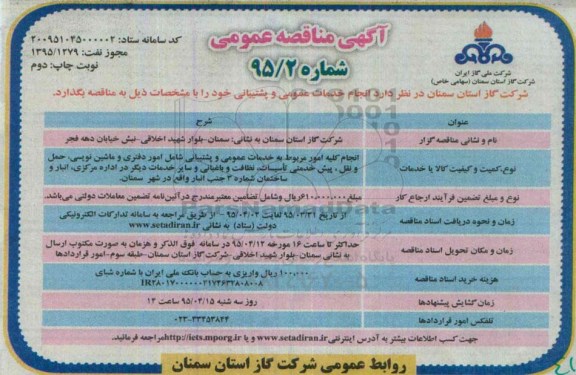 آگهی مناقصه عمومی
شماره ۹۵/۲
کد سامانه ستاد: ۲۰۰۹۵۱۰۴۵۰۰۰۰۰۲
مجوز نفت: ۱۳۹۵/۱۲۷۹
نوبت چاپ: دوم
شرکت ملی گاز ایران
شرکت گاز استان سمنان (سهامی خاص)
شرکت گاز استان سمنان در نظر دارد انجام خدمات عمومی و پشتیبانی خود را با مشخصات ذیل به مناقصه بگذارد.
عنوان
شرح
نام و نشانی مناقصه گزار
شرکت گاز استان سمنان به نشانی: سمنان-بلوار شهید اخلاقی-نبش خیابان دهه فجر
نوع،کمیت و کیفیت کالا یا خدمات
انجام کلیه امور مربوط به خدمات عمومی و پشتیبانی شامل امور دفتری و ماشین نویسی، حمل
و نقل، پیش خدمتی تأسیسات، نظافت و باغبانی و سایر خدمات دیگر در اداره مرکزی، انبار و
ساختمان شماره ۳ جنب انبار واقع در شهر سمنان.
نوع و مبلغ تضمین فرآیند ارجاع کار
مبلغ ۶۱۰،۰۰۰،۰۰۰ریال وشامل تضامین معتبرمندرج درآئین‌نامه تضمین معاملات دولتی می‌باشد.
زمان و نحوه دریافت اسناد مناقصه
از تاریخ ۹۵/۰۳/۳۱ لغایت ۹۵/۰۴/۰۲ از طریق مراجعه به سامانه تدارکات الکترونیکی
دولت (ستاد) به نشانی www.setadiran.ir
زمان و مکان تحویل اسناد مناقصه
حداکثر تا ساعت ۱۶ مورخه ۹۵/۰۴/۱۲ در سامانه فوق الذکر و هزمان به صورت مکتوب ارسال
به نشانی سمنان-بلوار شهید اخلاقی-شرکت گاز استان سمنان-طبقه سوم-امور قراردادها
هزینه خرید اسناد مناقصه
۱۰۰،۰۰۰ ریال واریزی به حساب بانک ملی ایران با شماره شبای
زمان گشایش پیشنهادها
روز سه شنبه ۹۵/۰۴/۱۵ ساعت ۱۲
تلفکس امور قراردادها
۰۲۳-۳۳۴۵۳۸۴۴
جهت کسب اطلاعات بیشتر به آدرس اینترنتی www.setadiran.ir و یا http://iets.mporg.ir مراجعه فرمائید.
روابط عمومی شرکت گاز استان سمنان